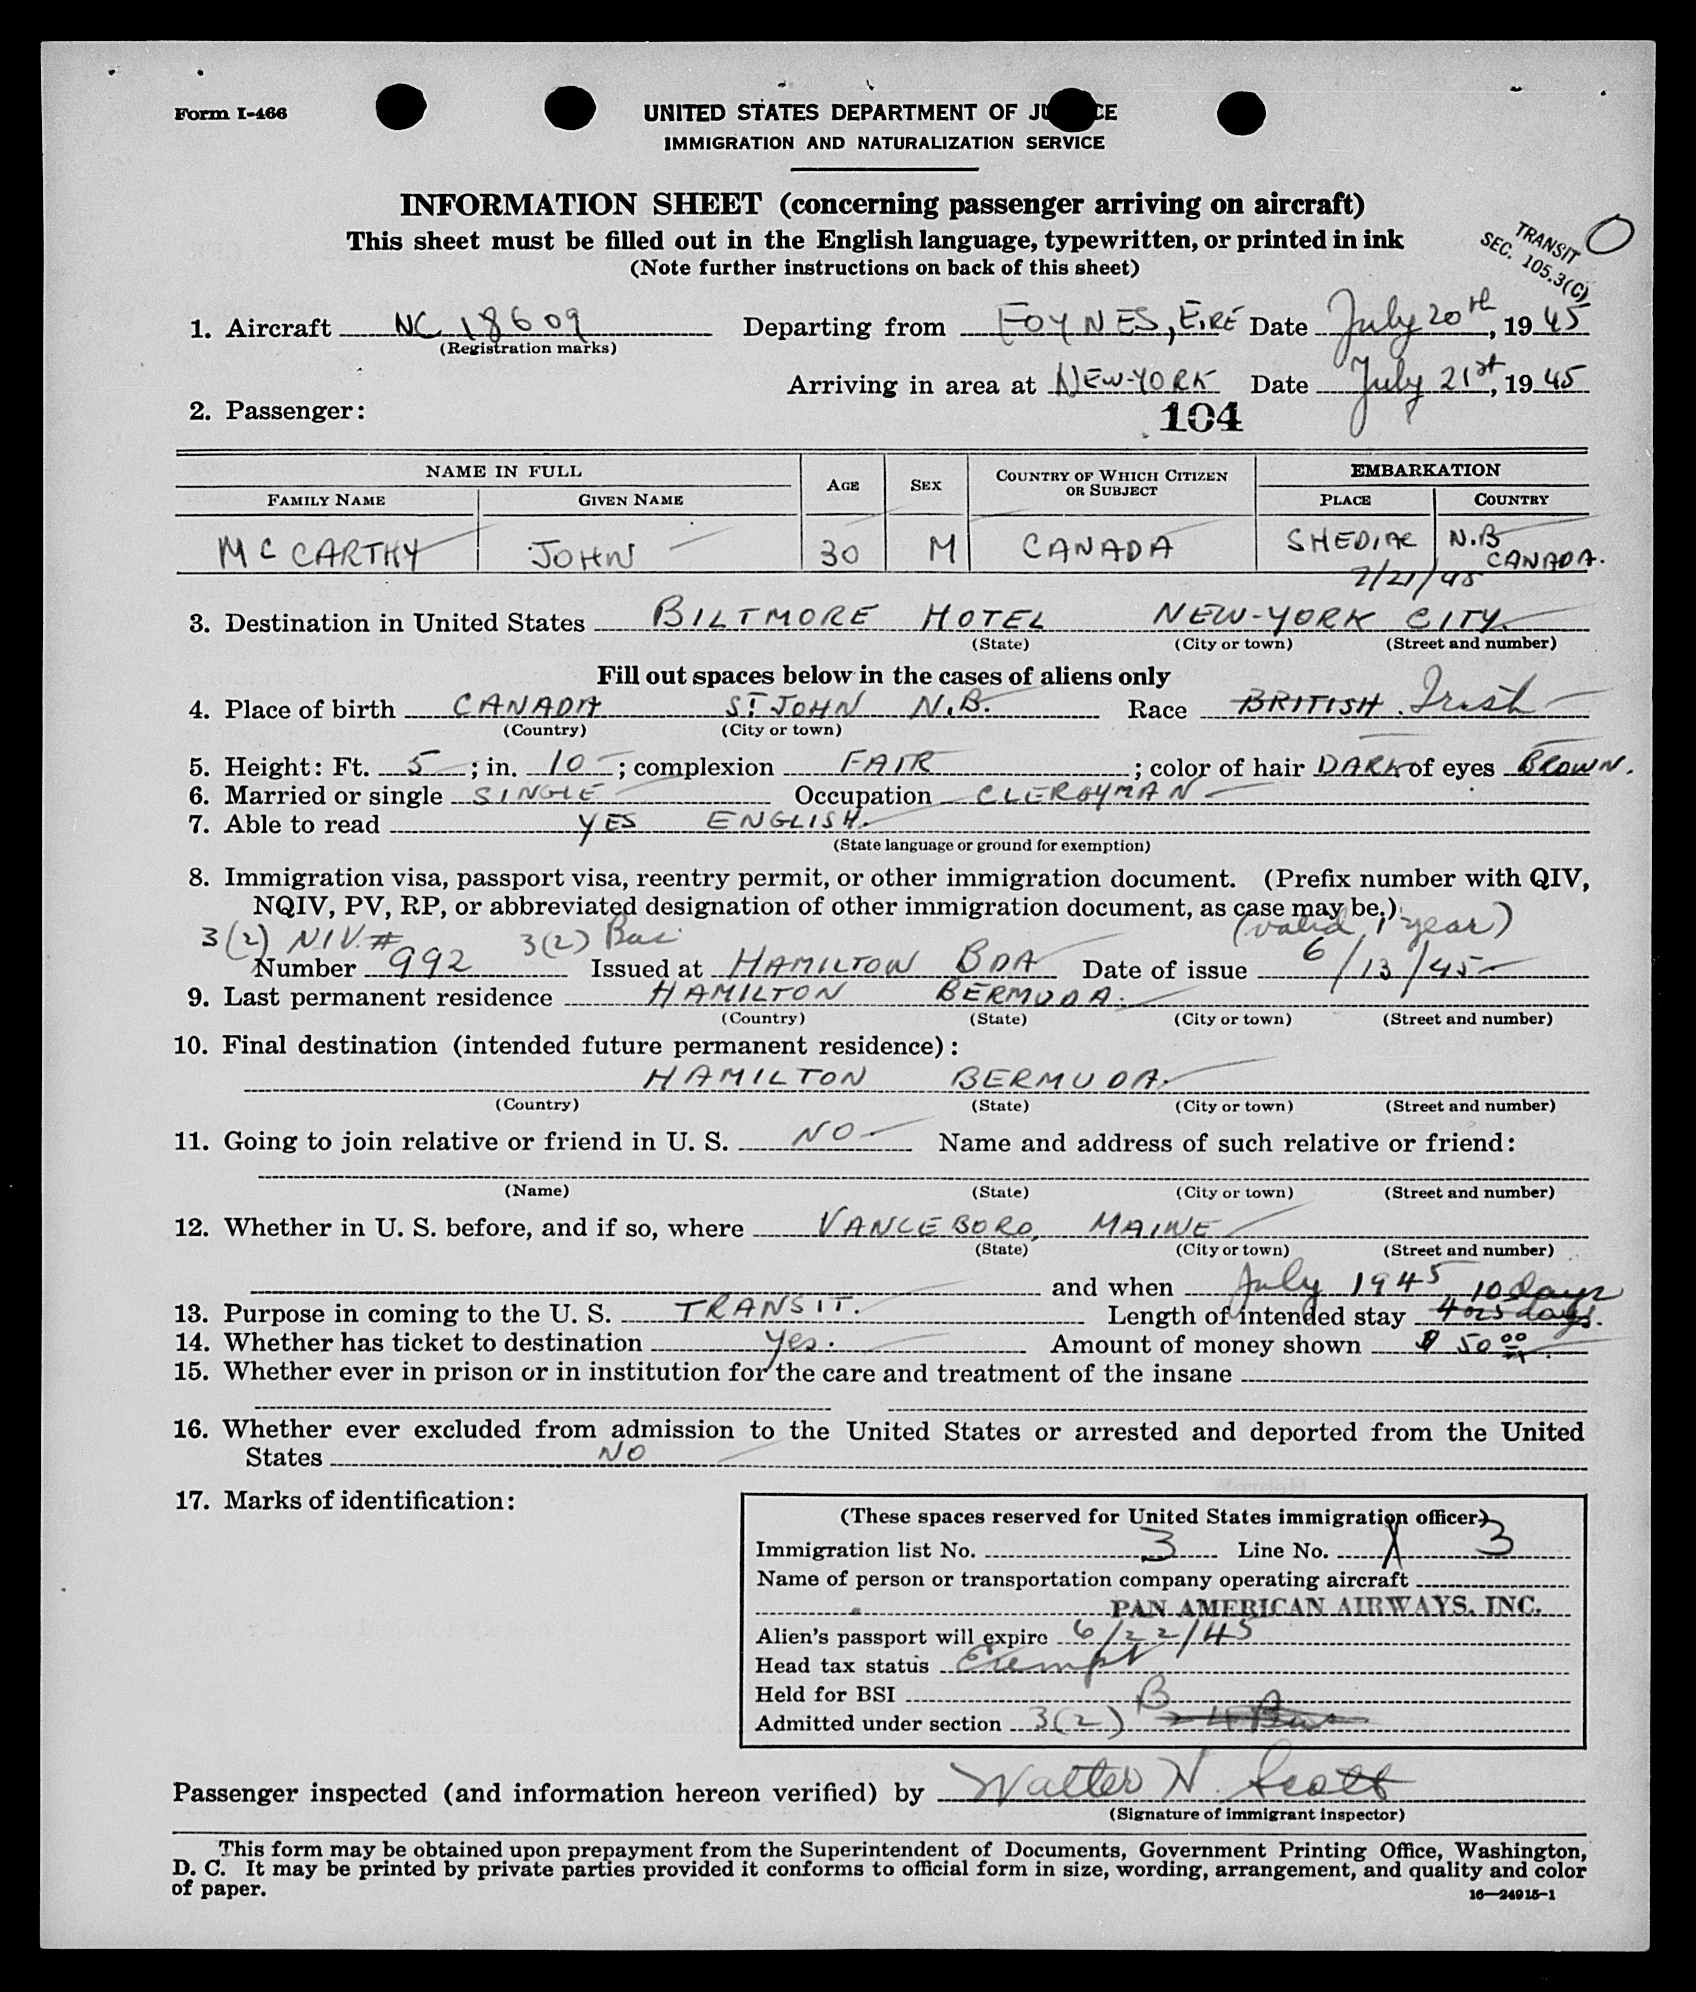 Form I-466
UNITED STATES DEPARTMENT OF JU CE
IMMIGRATION AND NATURALIZATION SERVICE
INFORMATION SHEET (concerning passenger arriving on aircraft)
This sheet must be filled out in the English language, typewritten, or printed in ink
(Note further instructions on back of this sheet)
TRANSIT
SEC. 105.3(C)
1. Aircraft NC 18609 Departing from FOYNES, EIRE Date July 20th, 1945
(Registration marks)
Arriving in area at NEW-YORK Date July 21st, 1945
2. Passenger:
104
NAME IN FULL
FAMILY NAME GIVEN NAME AGE SEX COUNTRY OF WHICH CITIZEN OR SUBJECT EMBARKATION
PLACE COUNTRY
MCCARTHY JOHN 30 M CANADA SHEDIAC N.B CANADA.
7/21/45
3. Destination in United States BILTMORE HOTEL NEW-YORK CITY.
(State) (City or town) (Street and number)
Fill out spaces below in the cases of aliens only
4. Place of birth CANADA ST JOHN N.B. Race BRITISH. Irish
(Country) (City or town)
5. Height: Ft. 5; in. 10; complexion FAIR; color of hair DARK of eyes BROWN.
6. Married or single SINGLE Occupation CLERGYMAN
7. Able to read YES ENGLISH.
(State language or ground for exemption)
8. Immigration visa, passport visa, reentry permit, or other immigration document. (Prefix number with QIV,
NQIV, PV, RP, or abbreviated designation of other immigration document, as case may be.)
3(2) NIV.# 3(2) Bus. (valid 1 year)
Number 992 Issued at HAMILTON BDA Date of issue 6/13/45
9. Last permanent residence HAMILTON BERMUDA.
(Country) (State) (City or town) (Street and number)
10. Final destination (intended future permanent residence):
HAMILTON BERMUDA.
(Country) (State) (City or town) (Street and number)
11. Going to join relative or friend in U. S. NO Name and address of such relative or friend:
(Name) (State) (City or town) (Street and number)
12. Whether in U. S. before, and if so, where VANCEBORO, MAINE
(State) (City or town) (Street and number)
and when July 1945
10 days
13. Purpose in coming to the U. S. TRANSIT. Length of intended stay 4 or 5 days.
14. Whether has ticket to destination Yes. Amount of money shown $ 50 00
15. Whether ever in prison or in institution for the care and treatment of the insane
16. Whether ever excluded from admission to the United States or arrested and deported from the United
States NO
17. Marks of identification:
(These spaces reserved for United States immigration officer)
Immigration list No. 3 Line No. 3
Name of person or transportation company operating aircraft
PAN AMERICAN AIRWAYS, INC.
Alien's passport will expire 6/22/45
Head tax status Exempt
Held for BSI
Admitted under section 3(2) B
Passenger inspected (and information hereon verified) by Walter N. Scott
(Signature of immigrant inspector)
This form may be obtained upon prepayment from the Superintendent of Documents, Government Printing Office, Washington,
D. C. It may be printed by private parties provided it conforms to official form in size, wording, arrangement, and quality and color
of paper.
16—24915-1